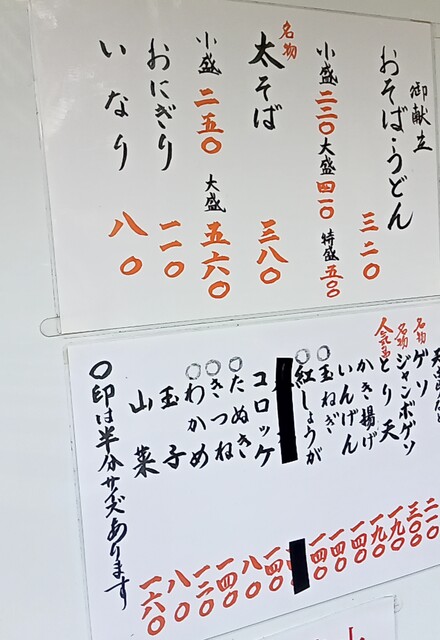 御献立
おそば・うどん 三二〇
小盛 二二〇 大盛 四一〇 特盛 五〇〇
名物 太そば 三八〇
小盛 二五〇 大盛 五六〇
おにぎり 一一〇
いなり 八〇
名物 ゲソ
名物 ジャンボゲソ 三〇〇
とり天 一九〇
かき揚げ 一九〇
いんげん 一四〇
〇玉ねぎ 一四〇
〇紅しょうが 一四〇
コロッケ 一四〇
〇たぬき 八〇
〇きつね 一四〇
〇わかめ 一二〇
玉子 八〇
山菜 一六〇
〇印は半分サイズあります